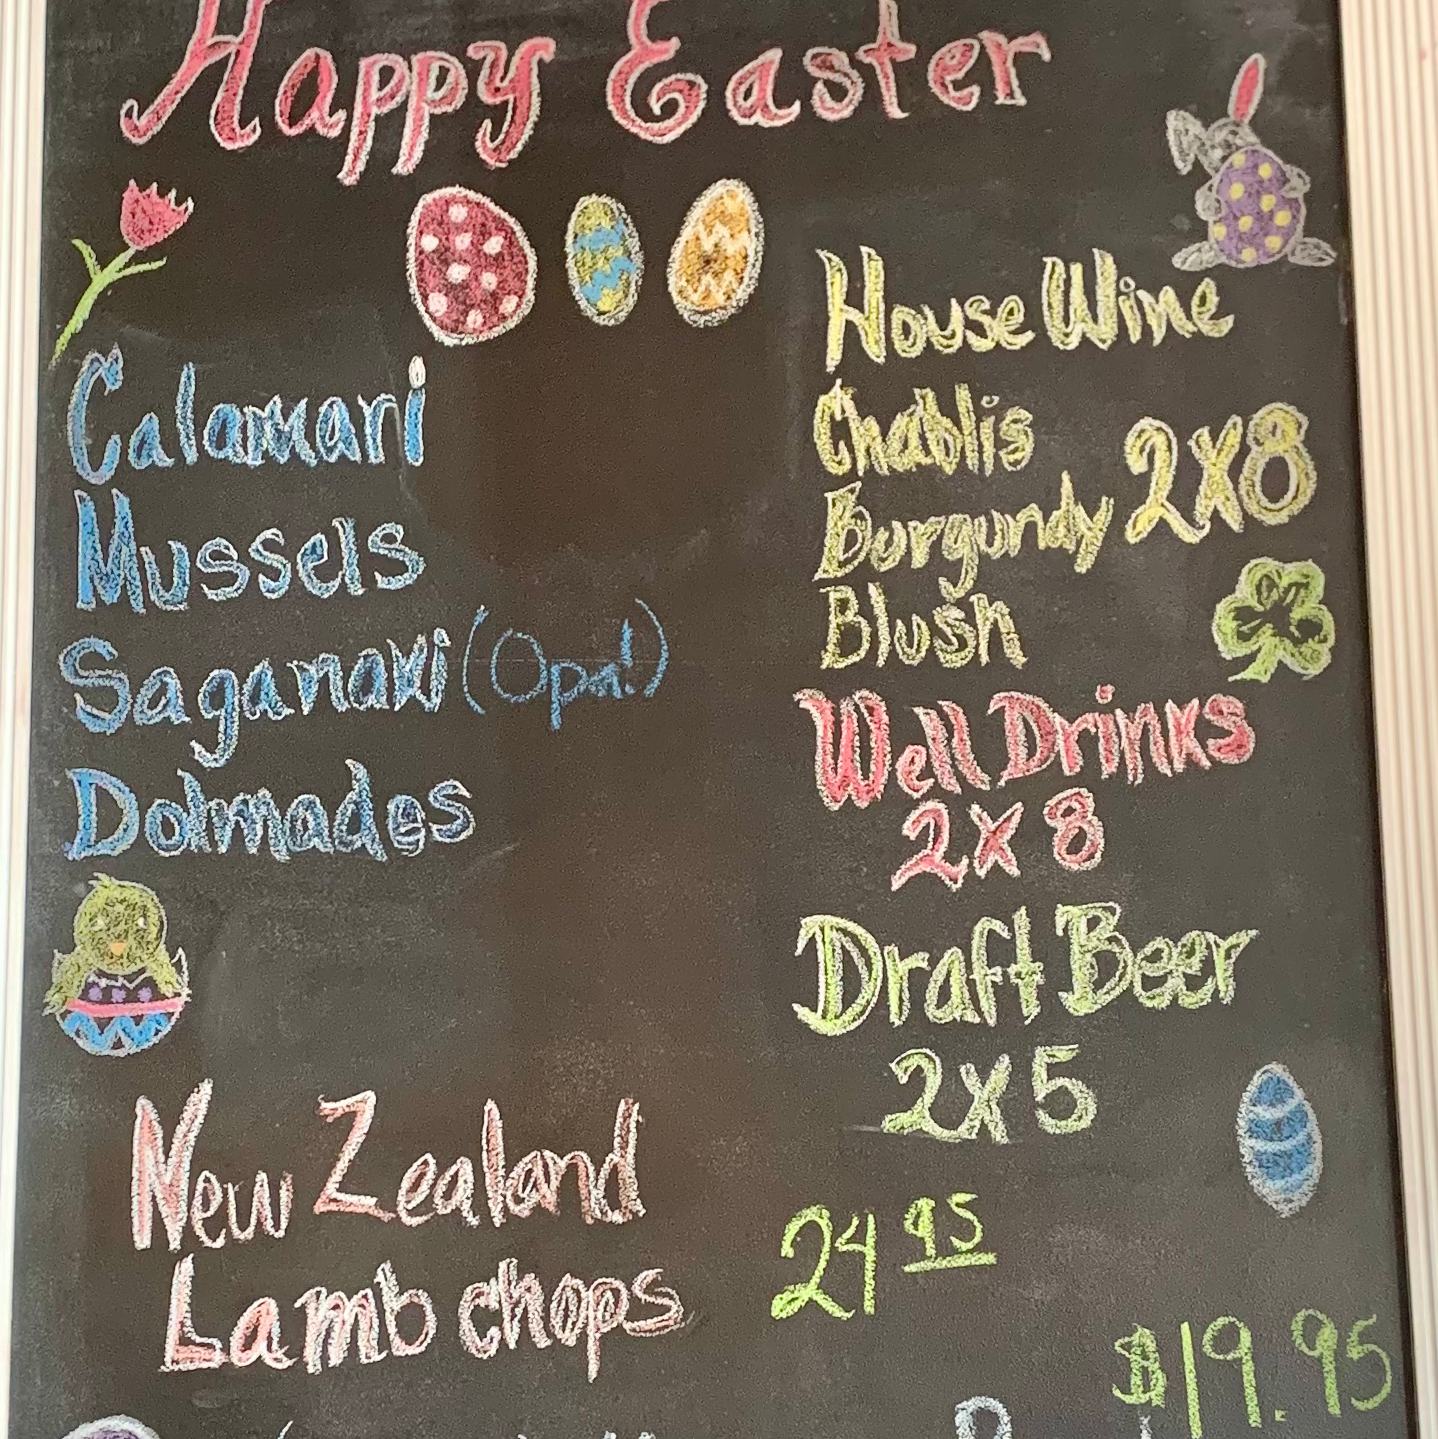 Happy Easter
Calamari
Mussels
Saganaki (Opa!)
Dolmades
House Wine
Chablis
Burgundy 2x8
Blush
Well Drinks
2x8
Draft Beer
2x5
New Zealand
Lamb chops
24 95
$19.95